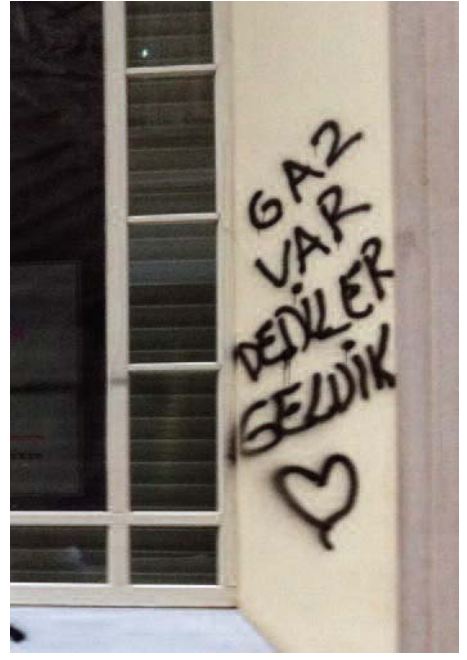 GAZ
VAR
DEDİLER
GELDİK